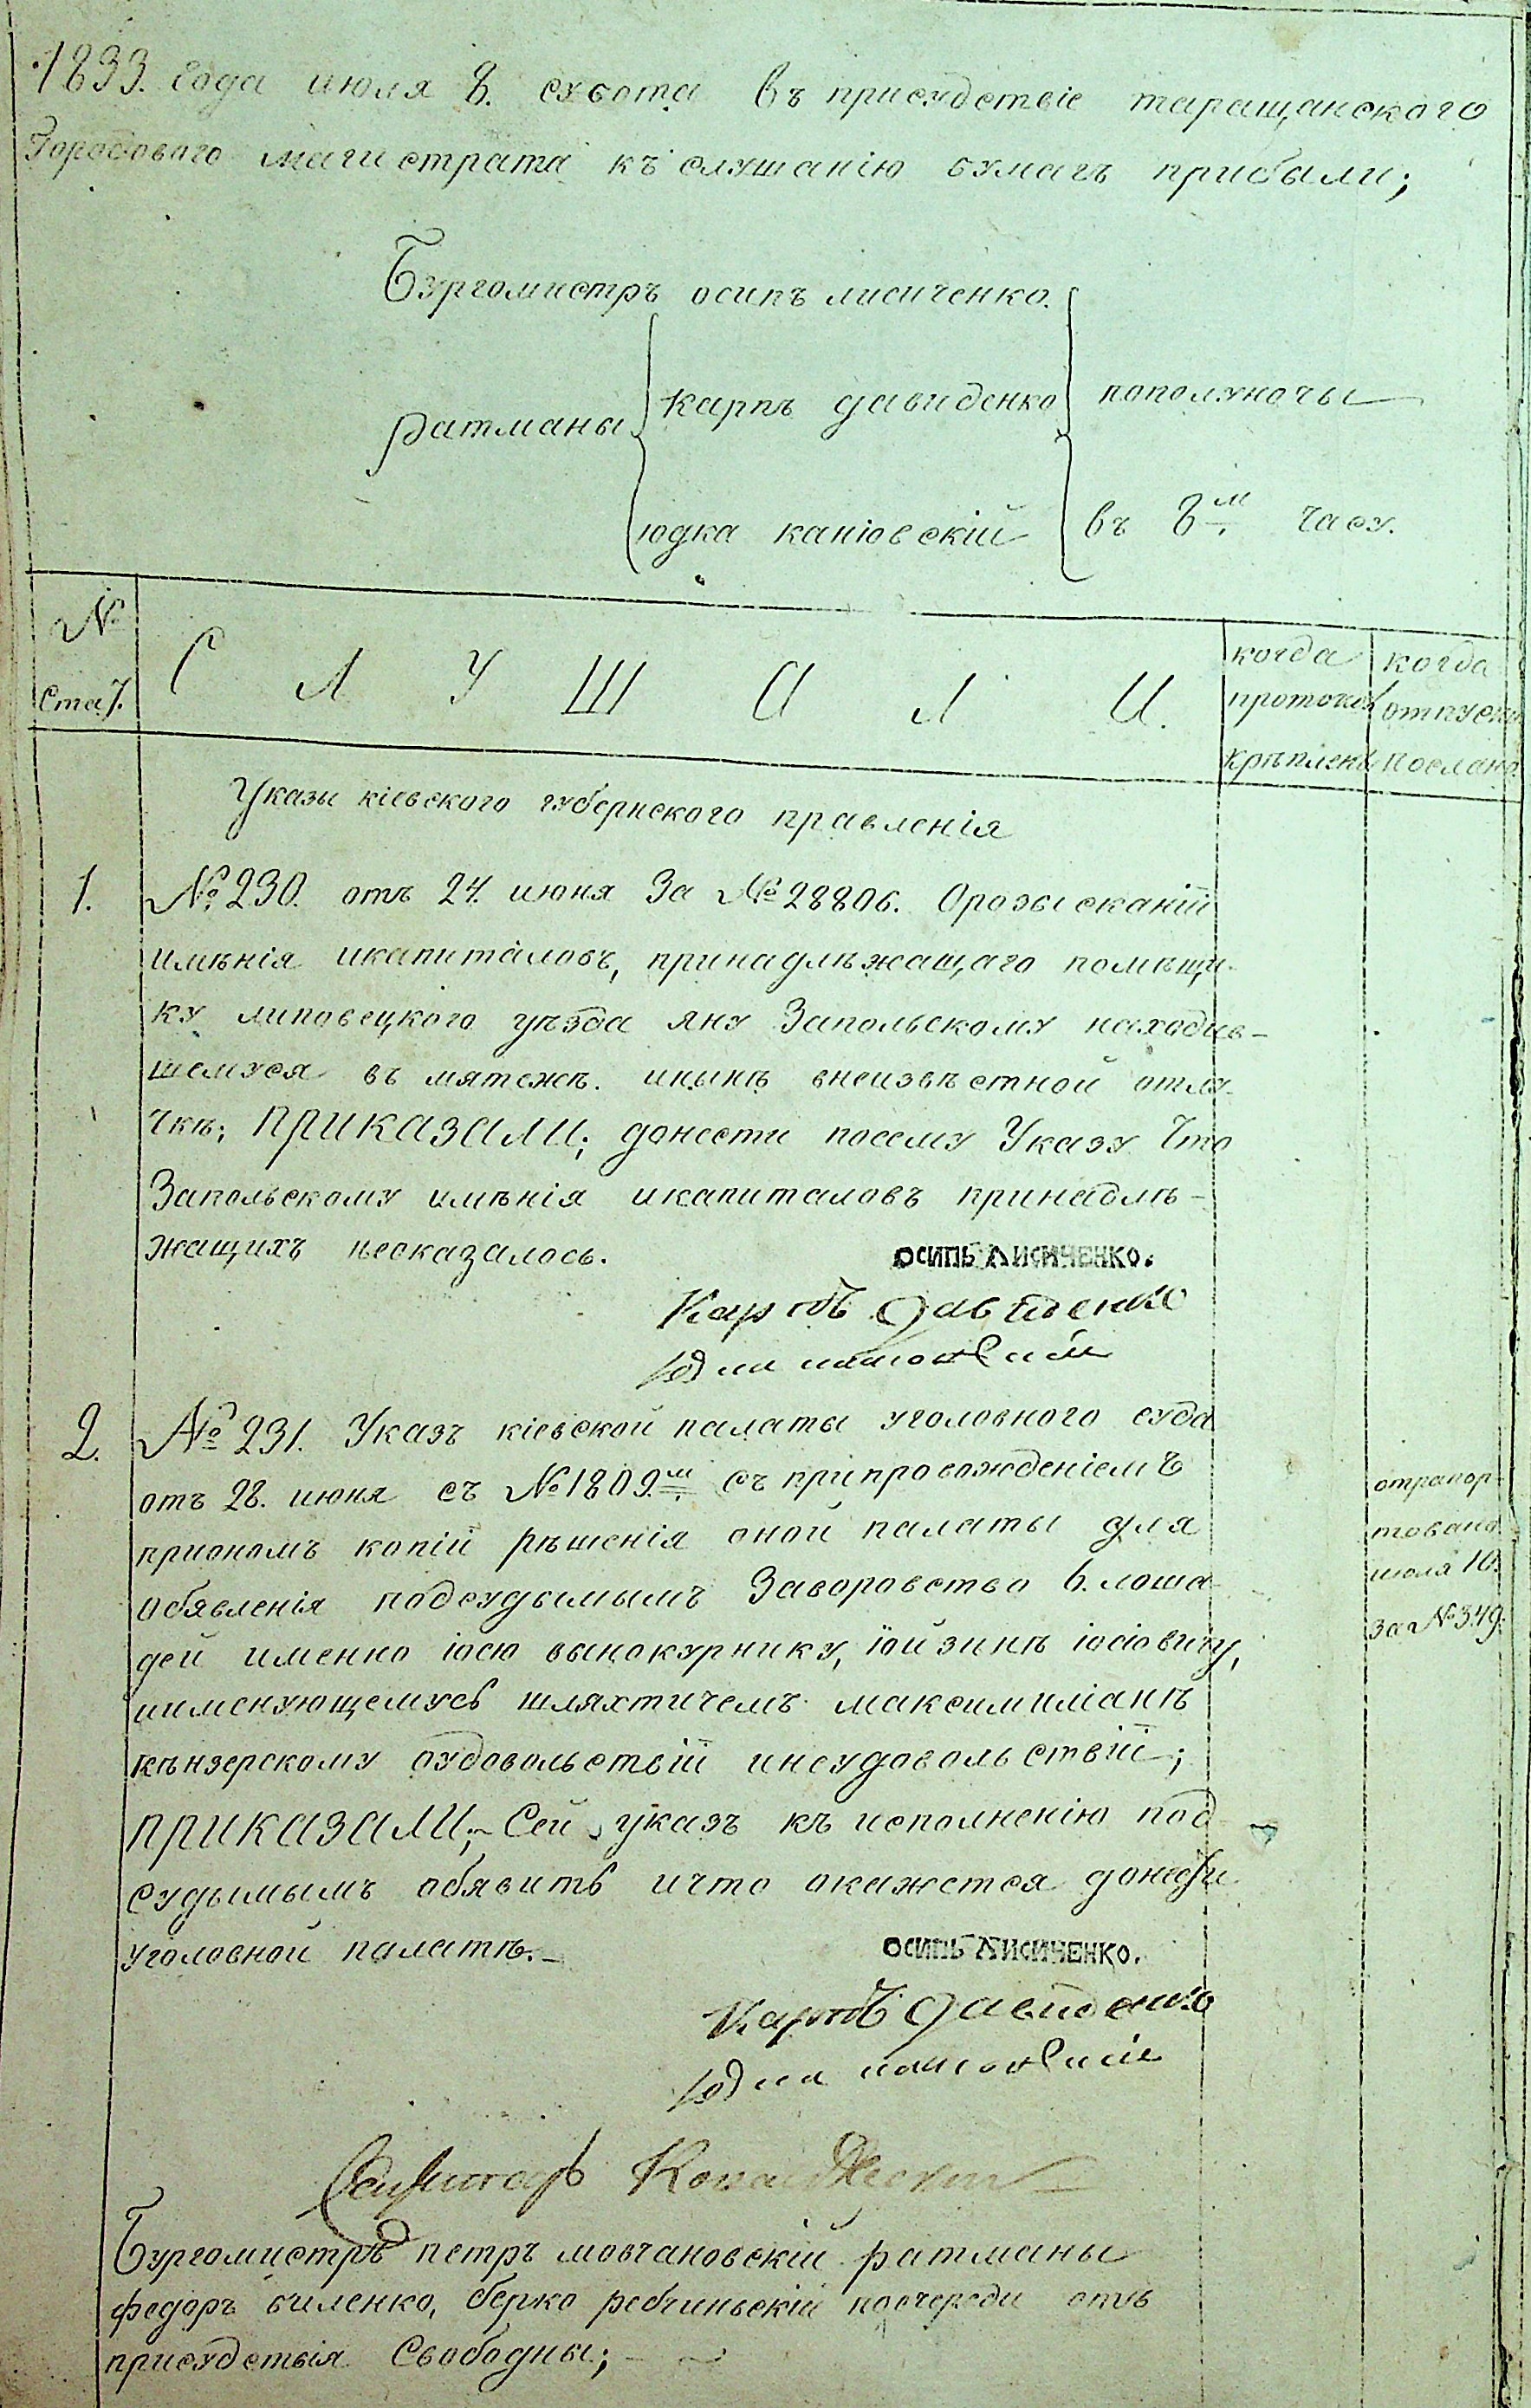 1833. года июля 8. субота въ присудствіе таращанского
Городового магистрата къ слушанію бумагъ прибыли;
Бургомистръ осипъ лисиченко.
ратманы
карпъ давиденко
пополуночы
юдка каніовскій
въ 8м часу.
№
Стат.
СЛУШАЛИ.
когда
протокол
крѣпленъ
когда
отпускъ
посланъ
Указы кіевского губернского правленія
1. №230. отъ 24. июня За №28806. Орозысканій
имѣнія икапиталовъ, принадлѣжащаго помѣщи-
ку липовецкого уѣзда яну Запольскому находив-
шемуся въ мятежѣ. инынѣ внеизвѣстной отлу-
чкѣ; ПРИКАЗАЛИ; донести посему Указу Что
Запольскому имѣнія икапиталовъ принадлѣ-
жащихъ неоказалось.
осипъ Лисиченко.
Карпъ давиденко
юдка каніовскій
2. №231. Указъ кіевской палаты уголовного суда
отъ 28. июня съ №1809.м съ припровожденіемъ
приономъ копій рѣшенія оной палаты для
обявленія подсудымымъ Заворовство 6. лоша
дей именно іосю вынокурнику, іойзинѣ іосіовичу,
иименующемусь шляхтичемъ максимиліанѣ
кѣнзерскому оудовольствій инеудовольствій;
ПРИКАЗАЛИ; Сей указъ къ исполненію под
судымымъ обявить ичто окажется донести
уголовной палатѣ.
отрапор-
товано
июля 10.
За №349.
осипъ Лисиченко.
Карпъ давиденко
юдка каніовскій
Секретарь
Бургомистръ петръ мовчановскій ратманы
федоръ биленко, берко ребчиньскій поочереди отъ
присудствія Свободны;